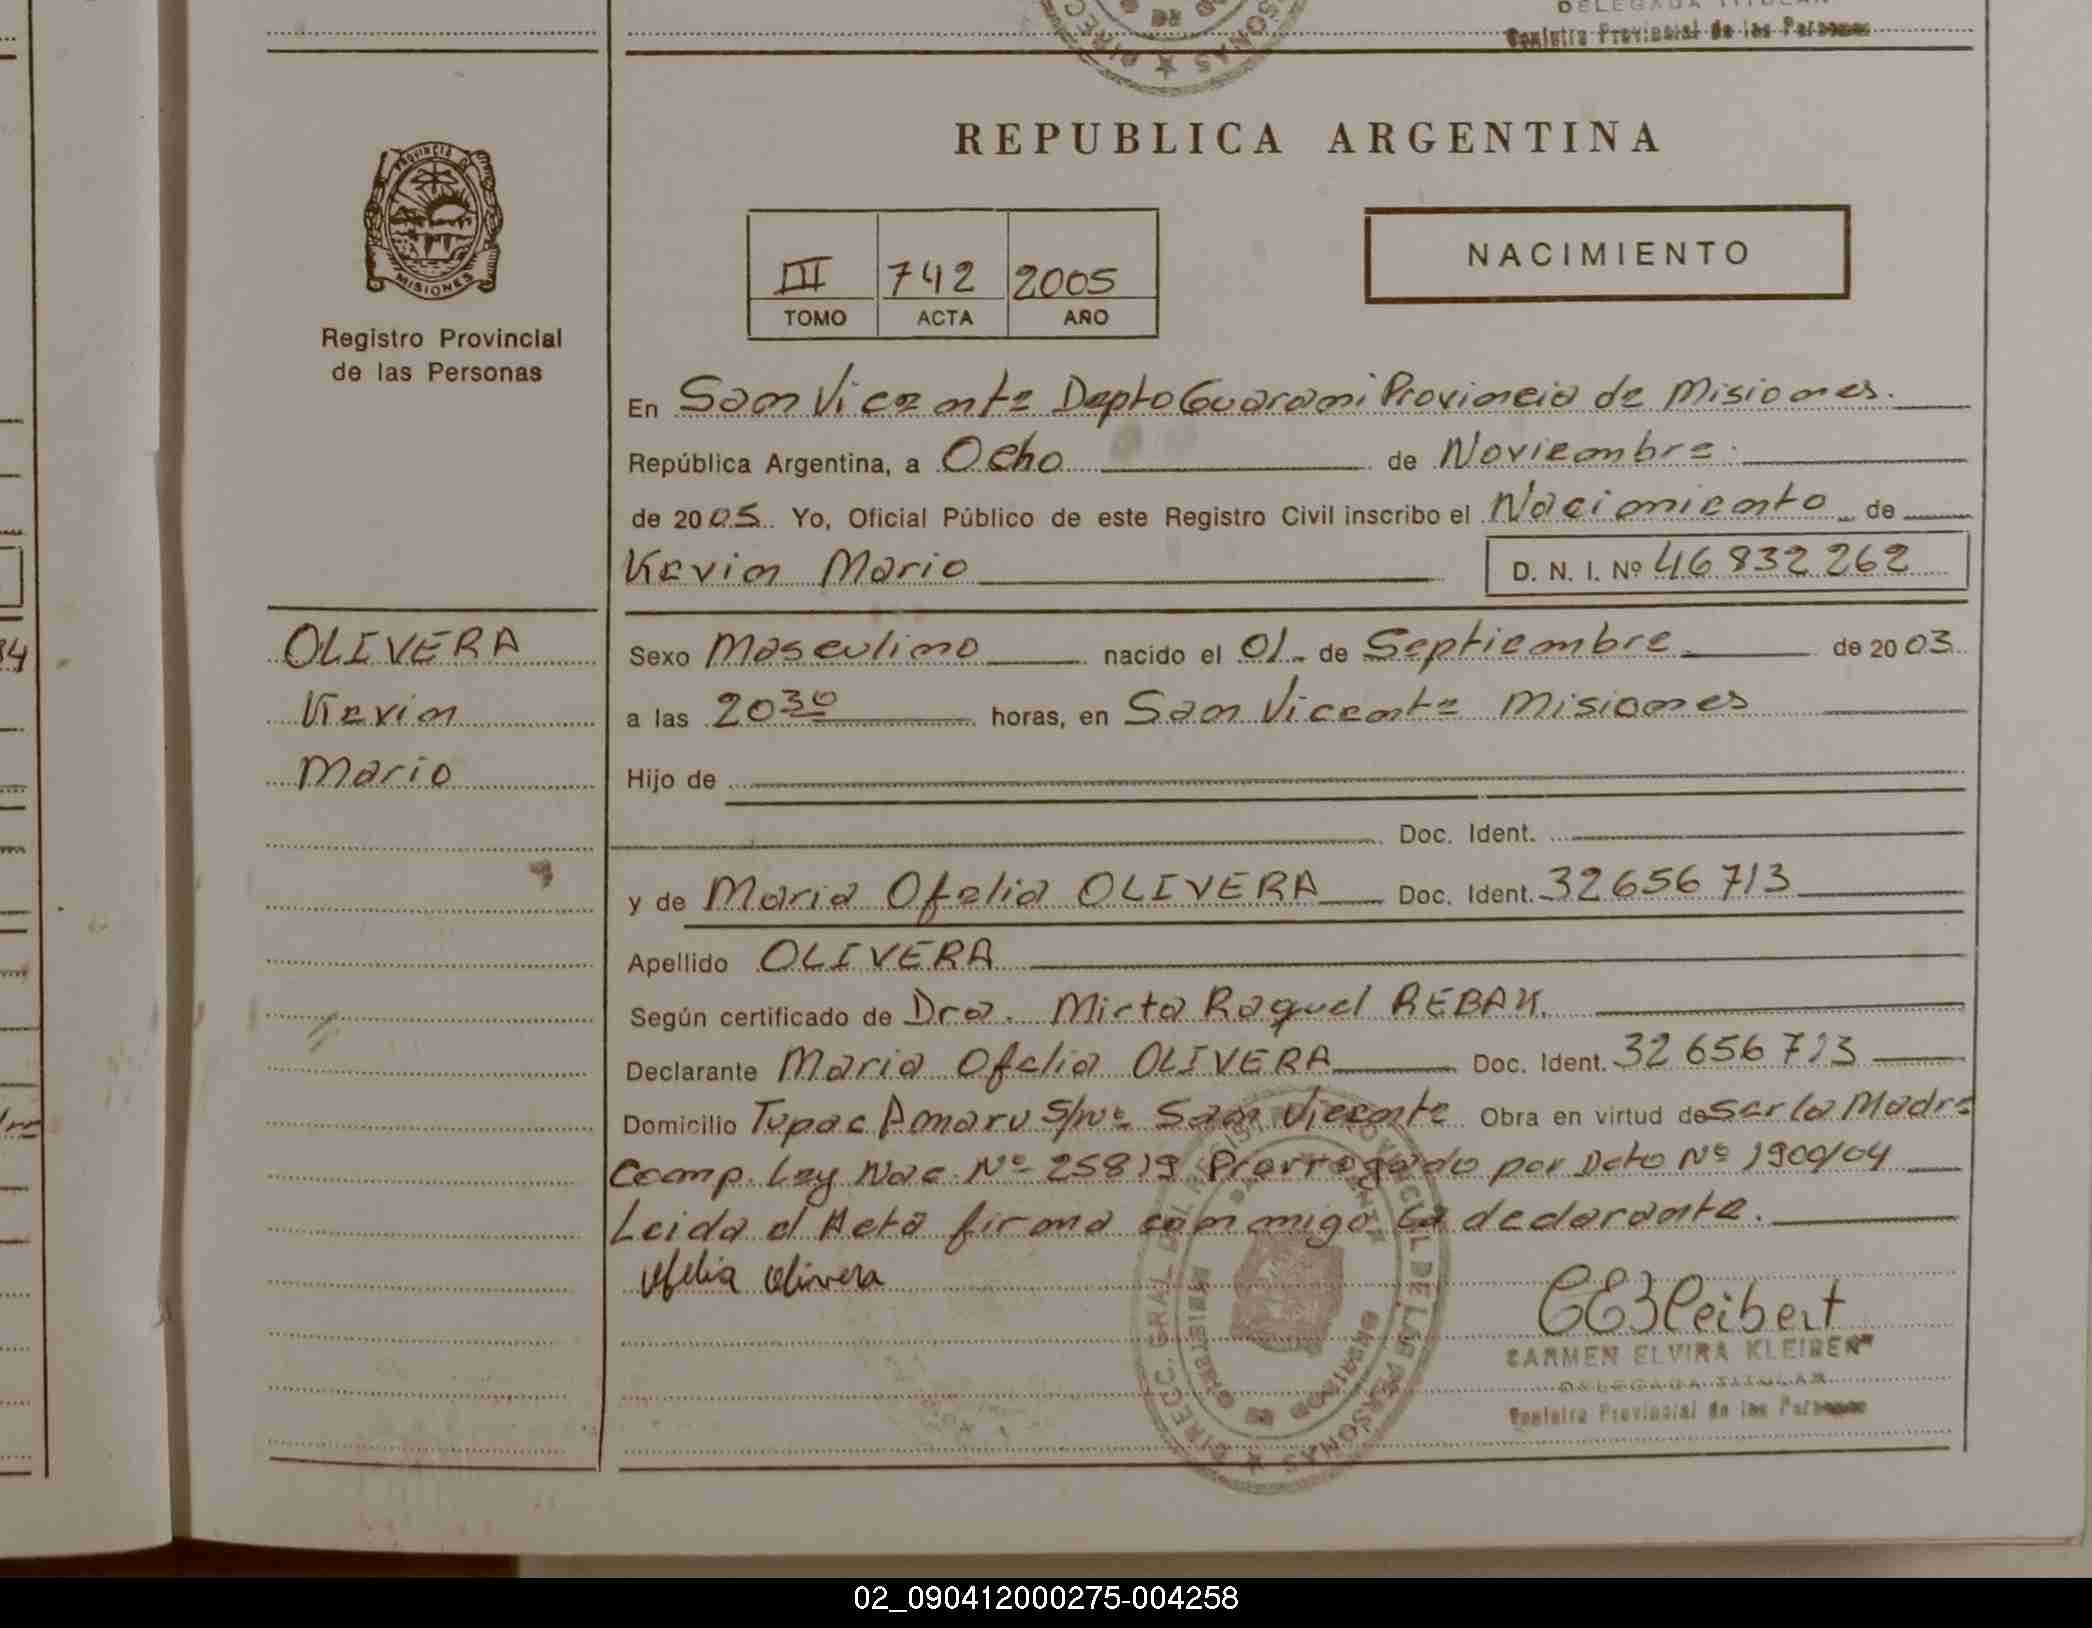 DELEGADA TITULAR
Registro Provincial de las Personas
REPUBLICA ARGENTINA
PROVINCIA D
MISIONES
Registro Provincial
de las Personas
III 742 2005
TOMO ACTA AÑO
NACIMIENTO
En San Vicente Depto Guarani Provincia de Misiones.
República Argentina, a Ocho de Noviembre.
de 2005. Yo, Oficial Público de este Registro Civil inscribo el Nacimiento de
Kevin Mario D. N. I. Nº 46 832 262
OLIVERA
Kevin
Mario
Sexo Masculino nacido el 01 de Septiembre de 2003
a las 20³⁰ horas, en San Vicente Misiones
Hijo de
Doc. Ident.
y de Maria Ofelia OLIVERA Doc. Ident. 32 656 713
Apellido OLIVERA
Según certificado de Dra. Mirta Raquel REBAK.
Declarante Maria Ofelia OLIVERA Doc. Ident. 32 656 713
Domicilio Tupac Amaru S/Nº San Vicente Obra en virtud de ser la Madre
Ccomp. Ley Nac Nº 25819 Prorrogado por Dcto Nº 1900/04
Leida el Acta firma conmigo la declarante.
Ofelia Olivera
CEKleibert
CARMEN ELVIRA KLEIBERT
DELEGADA TITULAR
Registro Provincial de las Personas
DIRECC. GRAL. DEL REGISTRO PROVINCIAL DE LAS PERSONAS
02_090412000275-004258